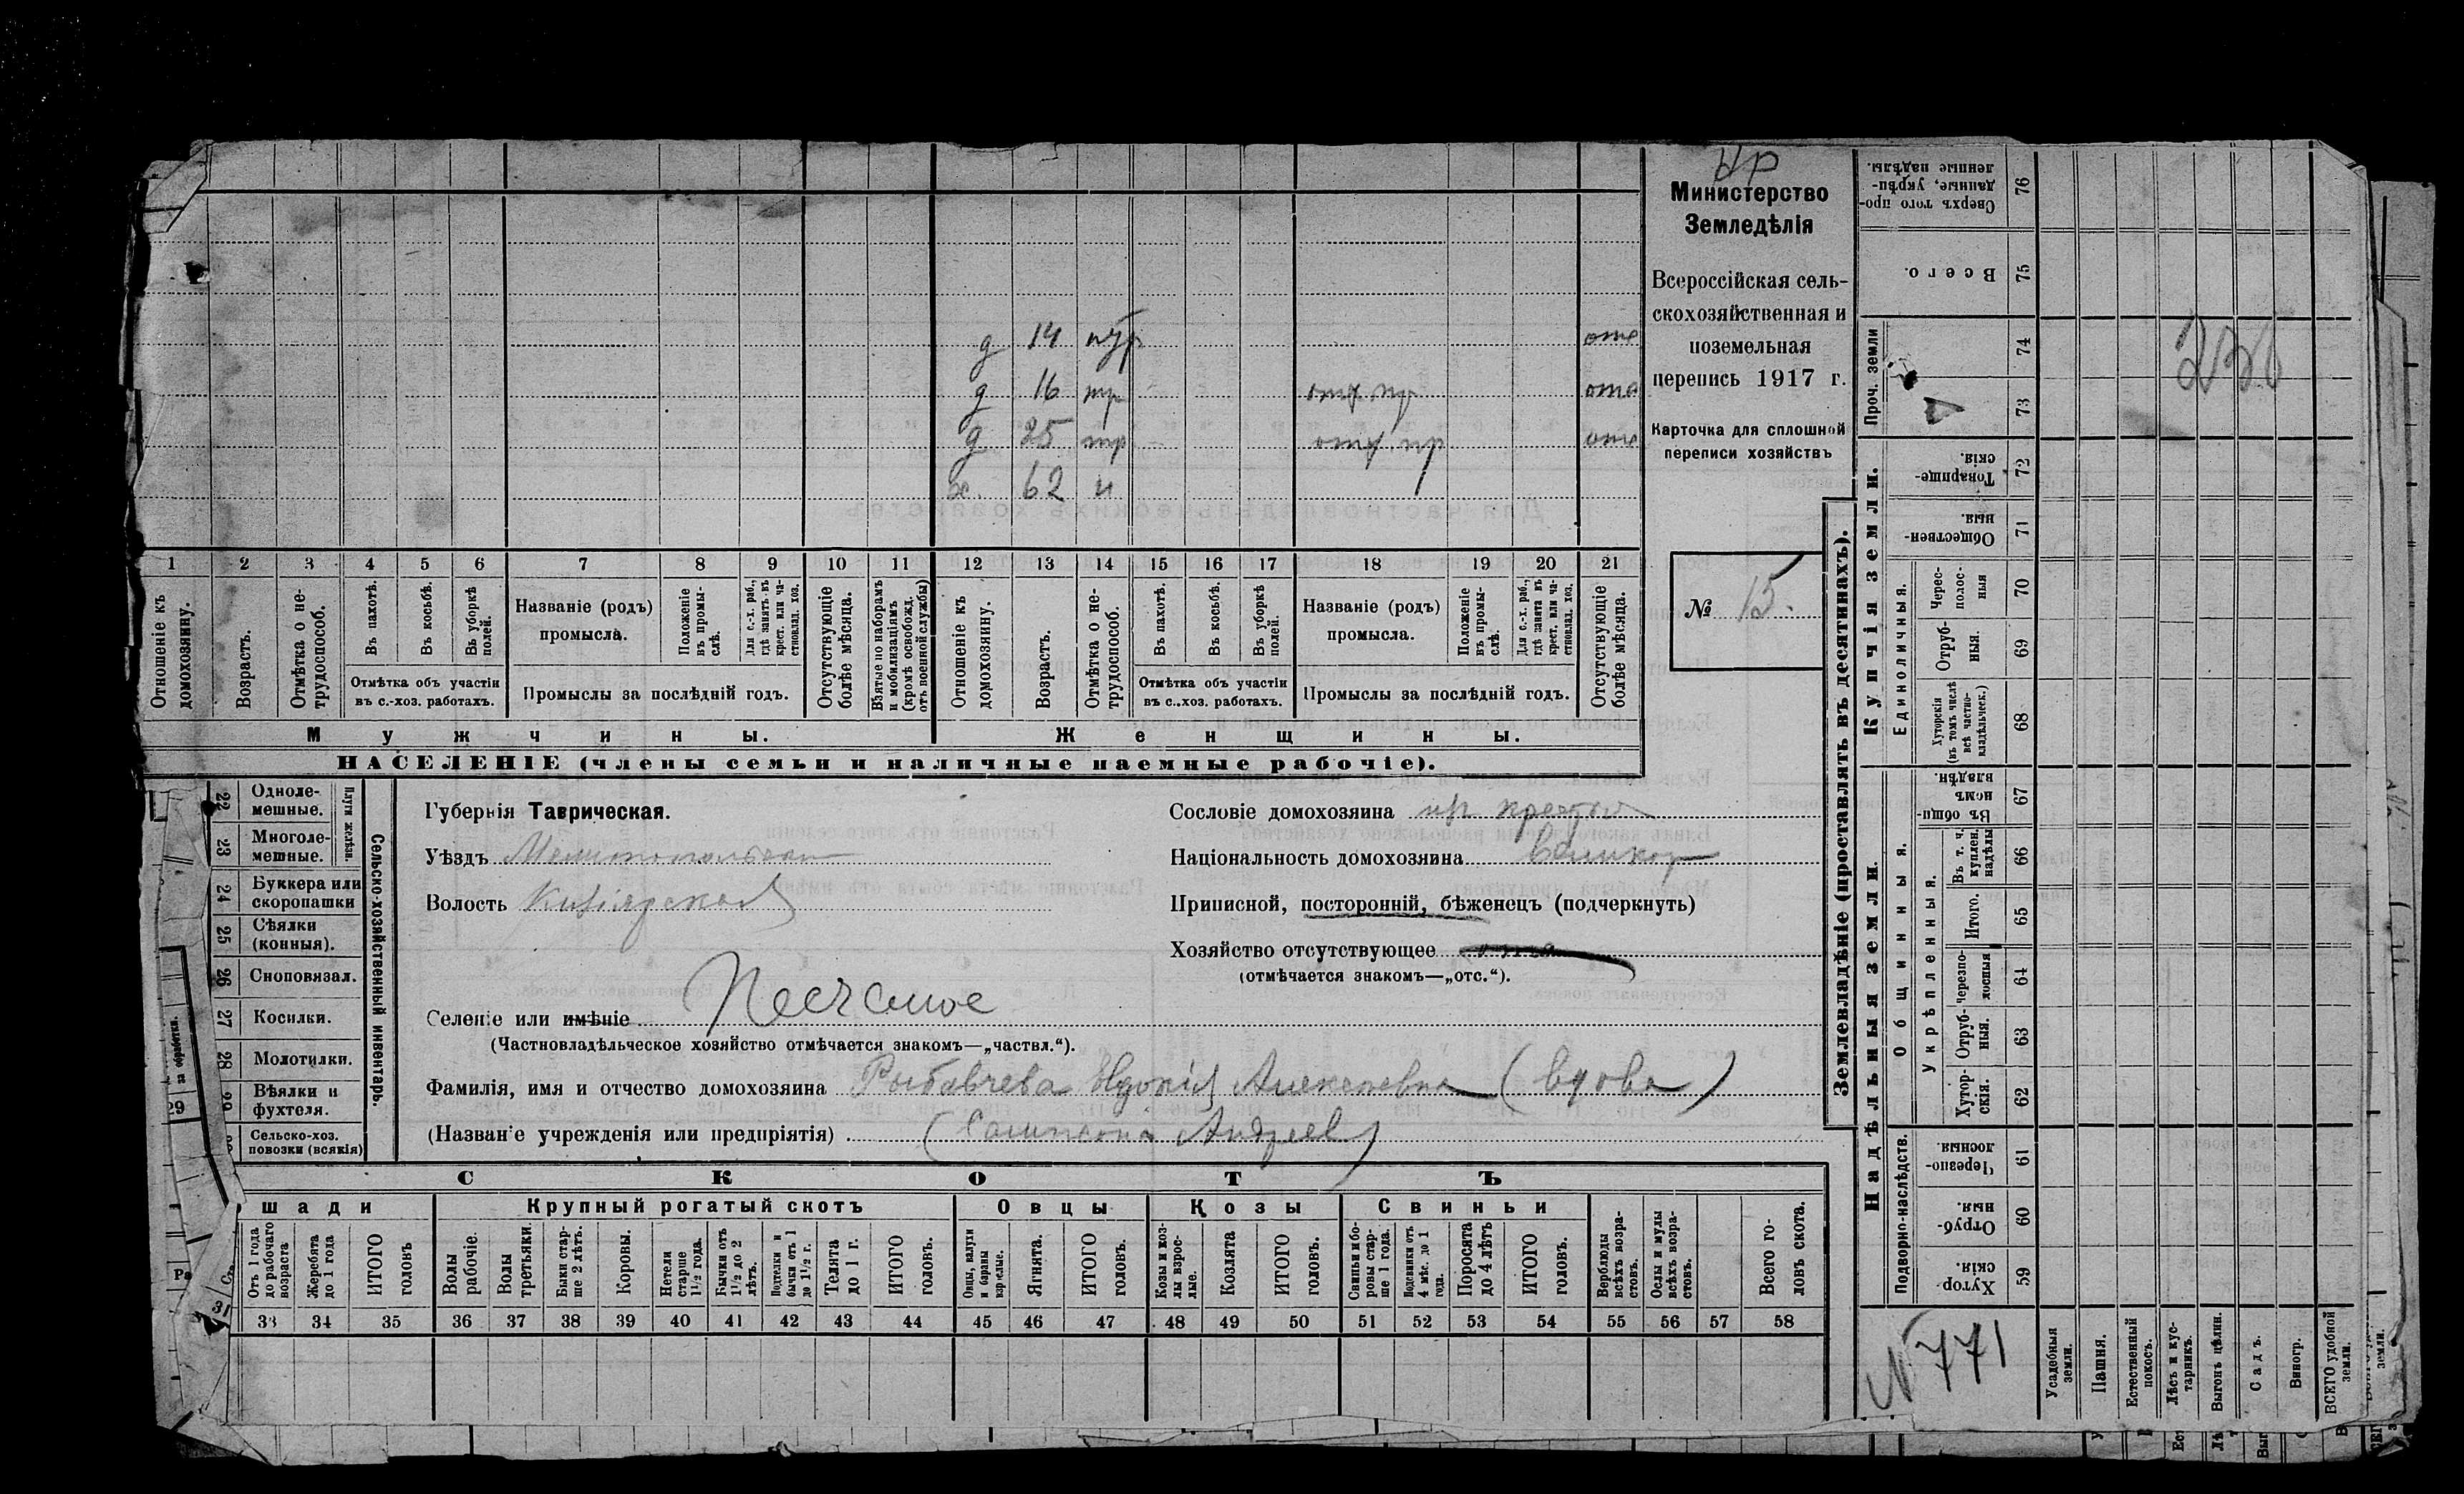 Министерство
Земледѣлія
Всероссійская сель-
скохозяйственная и
поземельная
перепись 1917 г.
Карточка для сплошной
переписи хозяйствъ
№ 15.
д 14 отс
д 16 тр отх. пр отс
д 25 тр отх. пр отс
х. 62 н
1 2 3 4 5 6 7 8 9 10 11 12 13 14 15 16 17 18 19 20 21
Отношеніе къ домохозяину.
Возрастъ.
Отмѣтка о не-трудоспособ.
Въ пахотѣ.
Въ косьбѣ.
Въ уборкѣ полей.
Отмѣтка объ участіи
въ с.-хоз. работахъ.
Названіе (родъ)
промысла.
Положеніе въ промы-слѣ.
Для с.-х. раб., гдѣ занятъ въ крест. или ча-стновлад. хоз.
Промыслы за послѣдній годъ.
Отсутствующіе болѣе мѣсяца.
Взятые по наборамъ и мобилизаціямъ (кромѣ освобожд. отъ военной службы)
Отношеніе къ домохозяину.
Возрастъ.
Отмѣтка о не-трудоспособ.
Въ пахотѣ.
Въ косьбѣ.
Въ уборкѣ полей.
Отмѣтка объ участіи
въ с.-хоз. работахъ.
Названіе (родъ)
промысла.
Положеніе въ промы-слѣ.
Для с.-х. раб., гдѣ занята въ крест. или ча-стновлад. хоз.
Промыслы за послѣдній годъ.
Отсутствующіе болѣе мѣсяца.
Мужчины. Женщины.
НАСЕЛЕНІЕ (члены семьи и наличные наемные рабочіе).
Сельско-хозяйственный инвентарь.
Плуги желѣзн.
22 Одноле-мешные.
23 Многоле-мешные.
24 Буккера или скоропашки
25 Сѣялки (конныя).
26 Сноповязал.
27 Косилки.
28 Молотилки.
29 Вѣялки и фухтеля.
Сельско-хоз. повозки (всякія)
31
Губернія Таврическая.
Уѣздъ Мелитопольскій
Волость Кизіярская
Селеніе или имѣніе Песчаное
(Частновладѣльческое хозяйство отмѣчается знакомъ—„частвл.“).
Сословіе домохозяина
Національность домохозяина Великор
Приписной, посторонній, бѣженецъ (подчеркнуть)
Хозяйство отсутствующее
(отмѣчается знакомъ—„отс.“).
Фамилія, имя и отчество домохозяина Рыбавчева Евдокія Алексѣевна (вдова)
(Названіе учрежденія или предпріятія) Андреев)
СКОТЪ
шади Крупный рогатый скотъ Овцы Козы Свиньи
Отъ 1 года до рабочаго возраста
Жеребята до 1 года
ИТОГО головъ
Волы рабочіе.
Волы третьяки.
Быки стар-ше 2 лѣтъ.
Коровы.
Нетели старше 1½ года.
Бычки отъ 1½ до 2 лѣтъ.
Подтелки и бычки отъ 1 до 1½ г.
Телята до 1 г.
ИТОГО головъ.
Овцы, валухи и бараны взрослые.
Ягнята.
ИТОГО головъ.
Козы и коз-лы взрос-лые.
Козлята
ИТОГО головъ.
Свиньи и бо-ровы стар-ше 1 года.
Подсвинки отъ 4 мѣс. до 1 года.
Поросята до 4 лѣтъ
ИТОГО головъ.
Верблюды всѣхъ возра-стовъ.
Ослы и мулы всѣхъ возра-стовъ.
Всего го-ловъ скота.
33 34 35 36 37 38 39 40 41 42 43 44 45 46 47 48 49 50 51 52 53 54 55 56 57 58
Землевладѣніе (проставлять въ десятинахъ).
Купчія земли.
Надѣльныя земли.
Сверхъ того про-данные, укрѣп-ленные надѣлы. 76
Всего. 75
Проч. земли 74 73
Товарище-скія. 72
Обществен-ныя. 71
Единоличныя.
Черес-полос-ныя 70
Отруб-ныя. 69
Хуторскія (въ томъ числѣ всѣ частно-владѣльческ.) 68
Общинныя.
Въ общи-номъ владѣн. 67
Укрѣпленныя.
Въ т. ч. куплен. надѣлы 66
Итого. 65
Черезпо-лосныя 64
Отруб-ныя. 63
Хутор-скія. 62
Подворно-наслѣдств.
Черезпо-лосныя 61
Отруб-ныя. 60
Хутор-скія. 59
N 771
Усадебныя земли.
Пашня.
Естественный покосъ.
Лѣсъ и кус-тарникъ.
Выгонъ цѣлин.
Садъ.
Виногр.
ВСЕГО удобной земли.